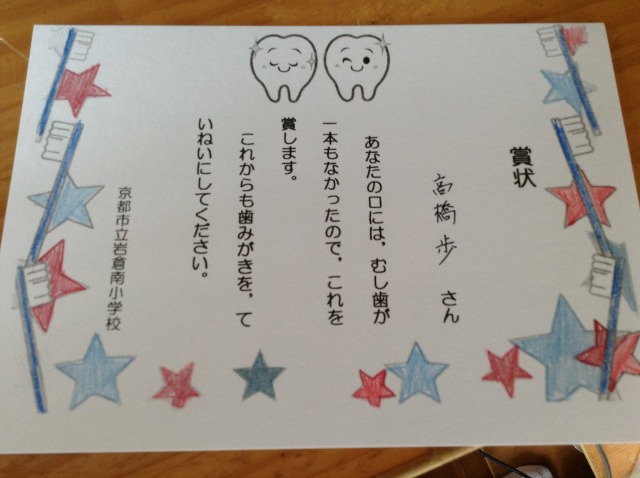 賞状
高橋歩 さん
あなたの口には，むし歯が
一本もなかったので，これを
賞します。
これからも歯みがきを，て
いねいにしてください。
京都市立岩倉南小学校